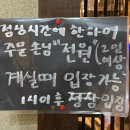 점심시간에 한하여
주문 손님 "전원" (2인 이상)
계실때 입장 가능
1시이후 정상 입장